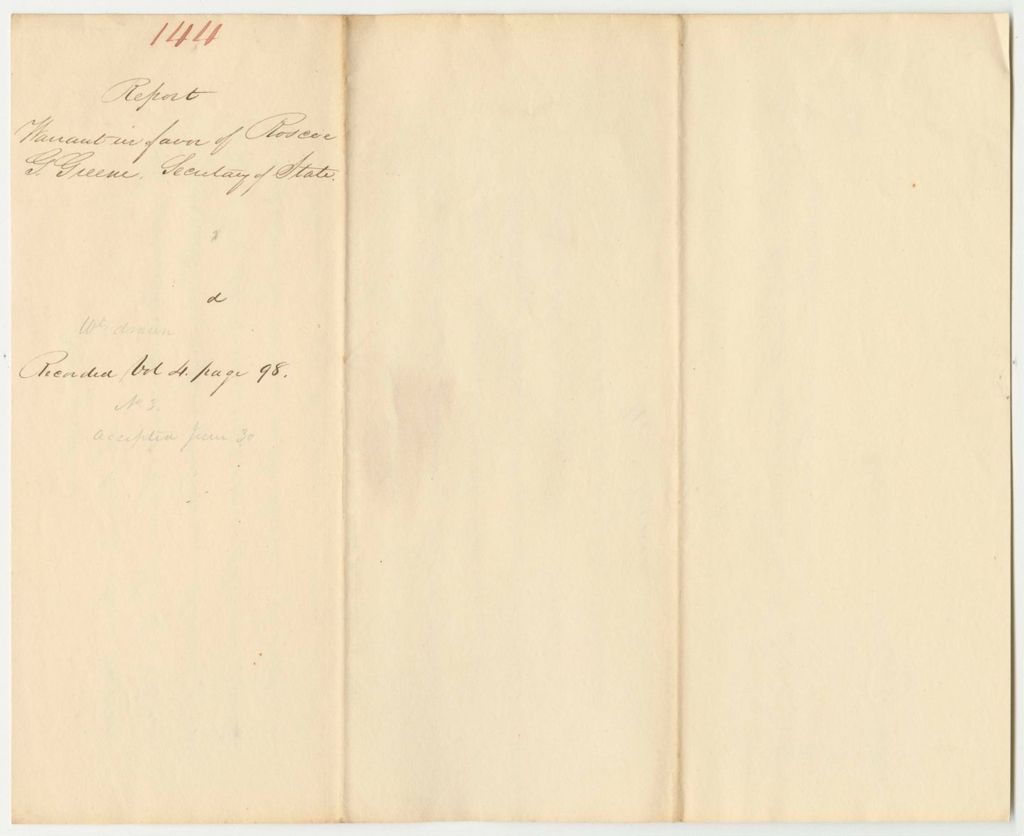 144
Report
Warrant in favor of Roscoe
G. Greene, Secretary of State.
x
d
Wt drawn
Recorded Vol 4. page 98.
No 3.
Accepted June 30